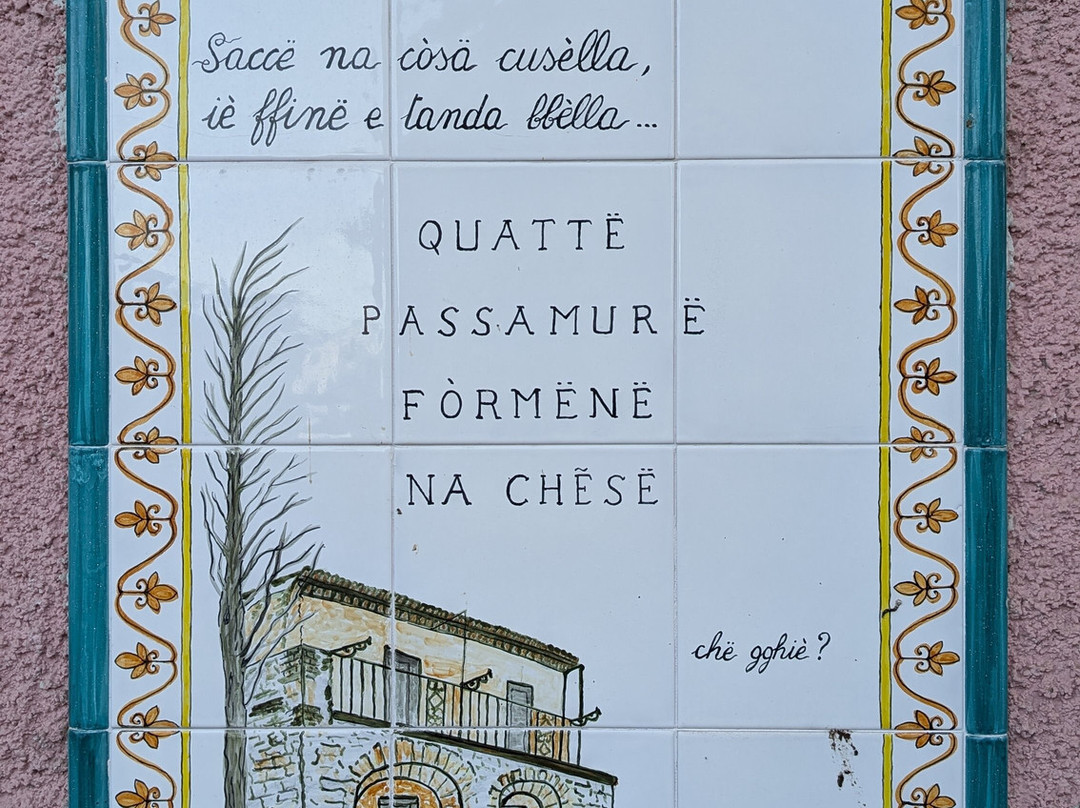 Saccë na còsä cusèlla,
iè ffinë e tanda bbèlla...
QUATTË
PASSAMURË
FÒRMËNË
NA CHẼSË
chë gghiè?